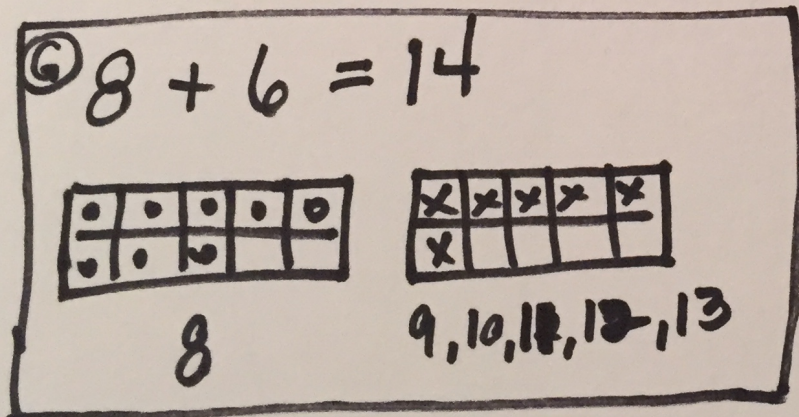 G 8 + 6 = 14
8
9, 10, 11, 12, 13